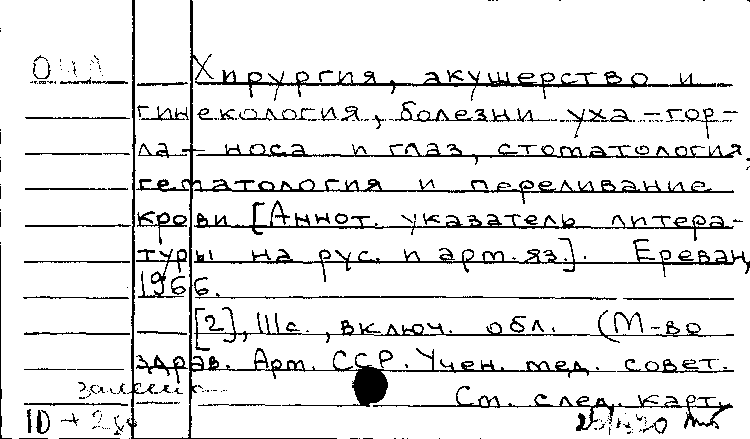 Хирургия, акушерство и
гинекология, болезни уха-гор-
ла-носа и глаз, стоматология,
гематология и переливание
крови [Аннот. указатель литера-
туры на рус. и арм. яз.]. Ереван,
1966.
[2], 111с., включ. обл. (М-во
здрав. Арм. ССР. Учен. мед. совет.
См. след. карт.